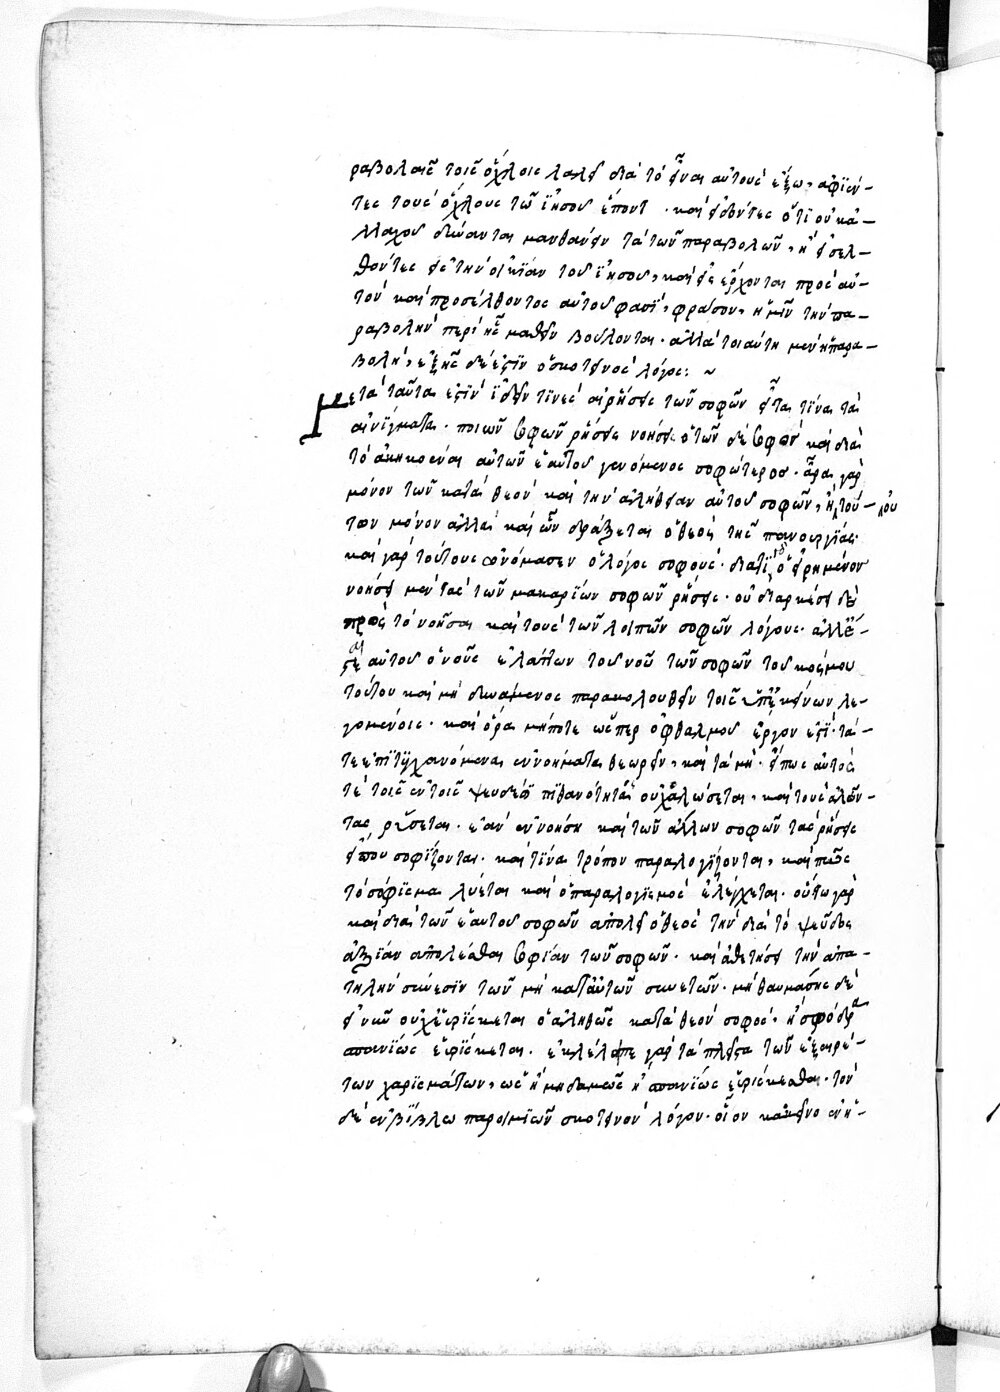 ραβολαῖς τοῖς ὄχλοις λαλεῖ διὰ τὸ εἶναι αὐτοὺς ἔξω, ἀφϊέν-
τες τοὺς ὄχλους τῶ ϊησοῦ ἕποντ. καὶ εἰδόντες ὅτι οὐκ ἀ-
λλαχοῦ δύνανται μανθάνειν τὰ τῶν παραβολῶν, ἢ εἰσελ-
θόντες εἰς τὴν οἰκϊαν τοῦ ϊησοῦ, καὶ εἰσέρχονται πρὸς αὐ-
τὸν καὶ προσελθόντος αὐτοῦ φασῒ, φράσον, ἡμῖν τὴν πα-
ραβολὴν περὶ ἧς μαθεῖν βούλονται. ἀλλὰ τοιαύτη μὲν ἡ παρα-
βολὴ, ἑξῆς δέ ἐστϊν ὁ σκοτεινὸς λόγος: ~
Μετὰ ταῦτα ἐστϊν ϊδεῖν τϊνὲς αἱ ῥήσεις τῶν σοφῶν εἶτα τϊνα τὰ
αἰνίγματα. ποιῶν σοφῶν ῥήσεις νοήσει ὁ τῶν δὲ σοφὸν καὶ διὰ
τὸ ἀκηκοέναι αὐτῶν ἑαυτοῦ γενόμενος σοφώτερος. ἆρα γὰρ
μόνον τῶν κατὰ θεὸν καὶ τὴν ἀλήθειαν αὐτοῦ σοφῶν, ἢ τού-
των μόνον ἀλλὰ καὶ ὧν δράξεται ὁ θεὸς τῆς πανουργίας
καὶ γὰρ τούτους ὠνόμασεν ὁ λόγος σοφούς. διατϊ ὁ εἰρημένον
νοήσει μὲν τὰς τῶν μακαρίων σοφῶν ῥήσεις. οὐ διαρκέσει δὲ
πρὸς τὸ νοῆσαι καὶ τοὺς τῶν λοιπῶν σοφῶν λόγους. ἀλλ' ἔ-
σται αὐτοῦ ὁ νοῦς ἐλάττων τοῦ νοῦ τῶν σοφῶν τοῦ κόσμου
τούτου καὶ μὴ δυνάμενος παρακολουθεῖν τοῖς ὑπ' ἐκείνων λε-
γομένοις. καὶ ὅρα μήποτε ὥσπερ ὀφθαλμοῦ ἔργον ἐστϊ τά-
τε ἐπιτυγχανόμενα ἐννοήματα θεωρεῖν, καὶ τὰ μὴ. ὅπως αὐτὸς
τὲ τοῖς ἐν τοῖς ψευδέσι πϊθανότητας οὐχ ἁλώσεται, καὶ τοὺς ἁλόν-
τας ῥύσεται. ἐὰν ἐννοήση καὶ τῶν ἄλλων σοφῶν τὰς ῥήσεις
εἴπου σοφίζονται. καὶ τϊνα τρόπον παραλογίζονται, καὶ πῶς
τὸ σόφισμα λύεται καὶ ὁ παραλογισμὸς ἐλέγχεται. οὕτω γὰρ
καὶ διὰ τῶν ἑαυτοῦ σοφῶν ἀπολεῖ ὁ θεὸς τὴν διὰ τὸ ψεῦδος
ἀξϊαν ἀπολέσθαι σοφίαν τῶν σοφῶν. καὶ ἀθετήσει τὴν ἀπα-
τηλὴν σύνεσιν τῶν μὴ κατ' αὐτὸν συνετῶν. μὴ θαυμάσης δὲ
εἰ νῦν οὐχ εὑρίσκεται ὁ ἀληθῶς κατὰ θεὸν σοφὸς, ἢ σφόδρα
σπανϊως εὑρϊσκεται. ἐκλέλοιπε γὰρ τὰ πλεῖστα τῶν ἐξαιρέ-
των χαρισμάτων, ὡς ἢ μηδαμῶς ἢ σπανϊως εὑρίσκεσθαι. τὸν
δὲ ἐν βίβλω παροιμιῶν σκοτεινὸν λόγον. οἷον κἀκεῖνο ἐνη-